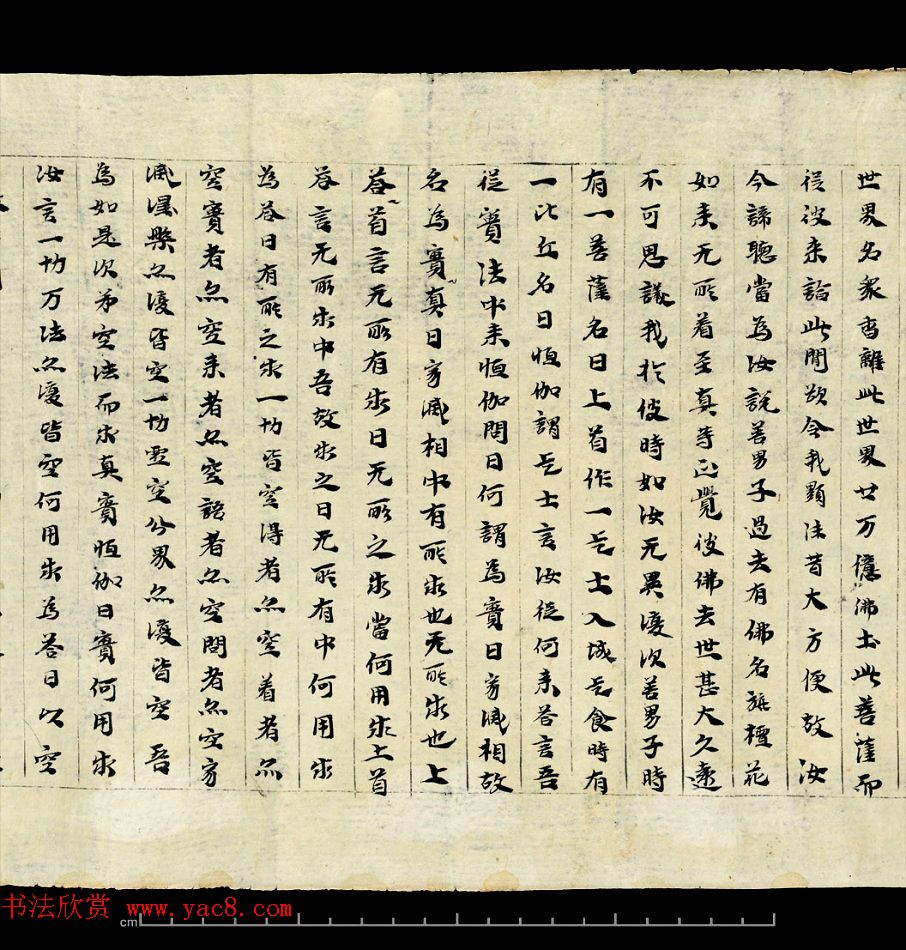 世界名衆香離此世界廿万億佛土此菩薩而
從彼来詣此間欲令我顯法昔大方便故汝
今諦聽當為汝説善男子過去有佛名旃檀花
如来无所着至真等正覺彼佛去世甚大久遠
不可思議我於彼時如汝无異復次善男子時
有一菩薩名曰上首作一乞士入城乞食時有
一比丘名曰恒伽謂乞士言汝從何来答言吾
從實法中来恒伽問曰何謂為實曰寂滅相故
名為實真曰寂滅相中有所求也无所求也上
答首言无所有求曰无所之求當何用求上首
答言无所求中吾故求之曰无所有中何用求
為答曰有所之求一切皆空得者亦空着者亦
空實者亦空来者亦空語者亦空問者亦空寂
滅涅槃亦復皆空一切虚空分界亦復皆空吾
為如是次弟空法而求真實恒伽曰實何用求
汝言一切万法亦復皆空何用求為答曰以空
cm
书法欣赏 www.yac8.com